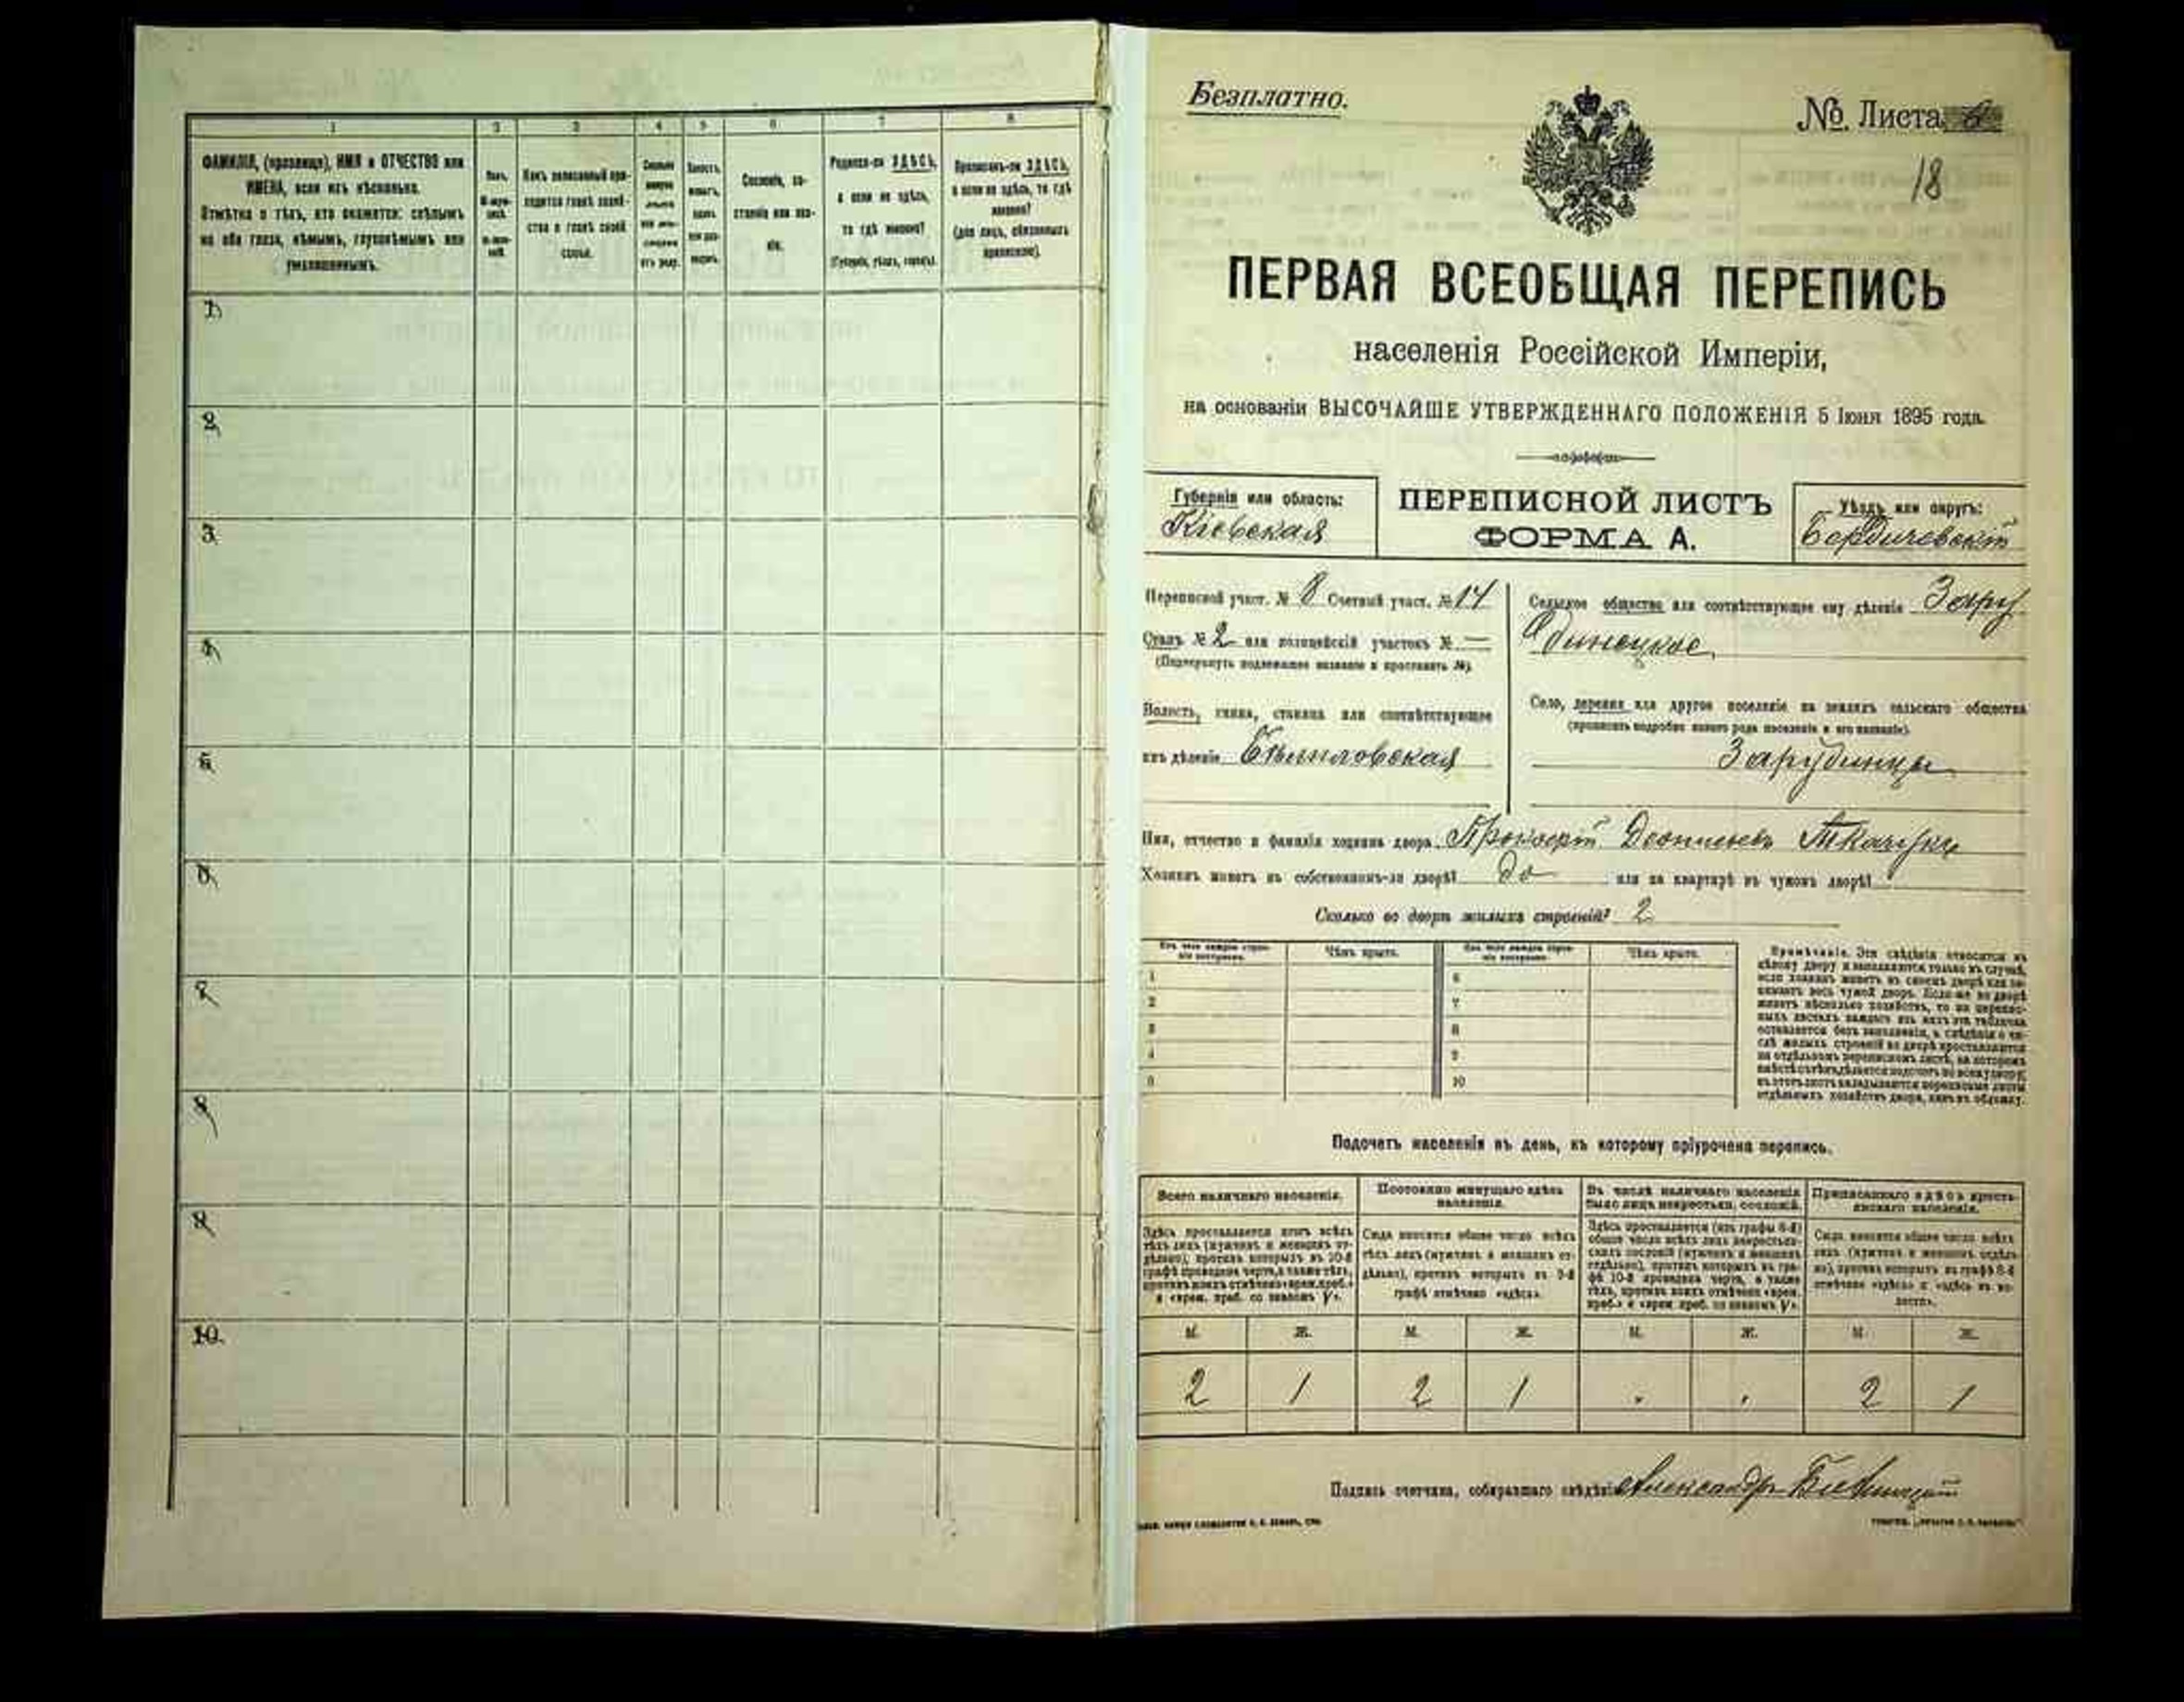 1 2 3 4 5 6 7 8
ФАМИЛІЯ, (прозвище), ИМЯ и ОТЧЕСТВО или
ИМЕНА, если ихъ нѣсколько.
Отмѣтка о тѣхъ, кто окажется: слѣпымъ
на оба глаза, нѣмымъ, глухонѣмымъ или
умалишеннымъ.
Какъ записанный при-
ходится главѣ хозяй-
ства и главѣ своей
семьи.
Сословіе, со-
стояніе или зва-
ніе.
Родился-ли ЗДѢСЬ,
а если не здѣсь,
то гдѣ именно?
(Губернія, уѣздъ, городъ).
Приписанъ-ли ЗДѢСЬ,
а если не здѣсь, то гдѣ
именно?
(для лицъ, обязанныхъ
припискою).
1
2
3
4
5
6
7
8
9
10.
Безплатно.
№ Листа
18
ПЕРВАЯ ВСЕОБЩАЯ ПЕРЕПИСЬ
населенія Россійской Имперіи,
на основаніи ВЫСОЧАЙШЕ УТВЕРЖДЕННАГО ПОЛОЖЕНІЯ 5 Іюня 1895 года.
Губернія или область:
Кіевская
ПЕРЕПИСНОЙ ЛИСТЪ
ФОРМА А.
Уѣздъ или округъ:
Бердичевскій
Переписной участ. № 8 Счетный участ. № 14
Станъ № 2 или полицейскій участокъ № —
(Подчеркнуть подлежащее названіе и проставить №).
Волость, гмина, станица или соотвѣтствующее
имъ дѣленіе
Сельское общество или соотвѣтствующее ему дѣленіе Зару
динецкое
Село, деревня или другое поселеніе на земляхъ сельскаго общества
(прописать подробно какого рода поселеніе и его названіе).
Зарудинцы
Имя, отчество и фамилія хозяина двора Прокофій
Хозяинъ живетъ въ собственномъ-ли дворѣ? да или на квартирѣ въ чужомъ дворѣ?
Сколько во дворѣ жилыхъ строеній? 2
Изъ чего каждое строе-
ніе построено.
Чѣмъ крыто.
Изъ чего каждое строе-
ніе построено.
Чѣмъ крыто.
1 6
2 7
3 8
4 9
5 10
Примѣчаніе. Эти свѣдѣнія относятся къ
цѣлому двору и заполняются только въ случаѣ,
если хозяинъ живетъ въ своемъ дворѣ или за-
нимаетъ весь чужой дворъ. Если-же во дворѣ
живетъ нѣсколько хозяйствъ, то на перепис-
ныхъ листахъ каждаго изъ нихъ эта табличка
оставляется безъ заполненія, а свѣдѣнія о чи-
слѣ жилыхъ строеній во дворѣ проставляются
на отдѣльномъ переписномъ листѣ, на которомъ
вмѣстѣ съ тѣмъ дѣлается подсчетъ по всему двору;
въ этотъ листъ вкладываются переписные листы
отдѣльныхъ хозяйствъ двора, какъ въ обложку.
Подсчетъ населенія въ день, къ которому пріурочена перепись.
Всего наличнаго населенія.
Постоянно живущаго здѣсь
населенія.
Въ числѣ наличнаго населенія
было лицъ некрестьян. сословій.
Приписаннаго здѣсь кресть-
янскаго населенія.
Здѣсь проставляется итогъ всѣхъ
тѣхъ лицъ (мужчинъ и женщинъ от-
дѣльно), противъ которыхъ въ 10-й
графѣ проведена черта, а также тѣхъ,
противъ коихъ отмѣчено «врем. преб.»
и «врем. преб. со знакомъ V».
Сюда вносится общее число всѣхъ
тѣхъ лицъ (мужчинъ и женщинъ от-
дѣльно), противъ которыхъ въ 9-й
графѣ отмѣчено «здѣсь».
Здѣсь проставляется (изъ графы 6-й)
общее число всѣхъ лицъ некрестьян-
скихъ сословій (мужчинъ и женщинъ
отдѣльно), противъ которыхъ въ гра-
фѣ 10-й проведена черта, а также
тѣхъ, противъ коихъ отмѣчено «врем.
преб.» и «врем. преб. со знакомъ V».
Сюда вносится общее число всѣхъ
лицъ (мужчинъ и женщинъ отдѣль-
но), противъ которыхъ въ графѣ 8-й
отмѣчено «здѣсь» и «здѣсь въ во-
лости».
М. Ж. М. Ж. М. Ж. М. Ж.
2 1 2 1 2 1
Подпись счетчика, собиравшаго свѣдѣнія Александръ